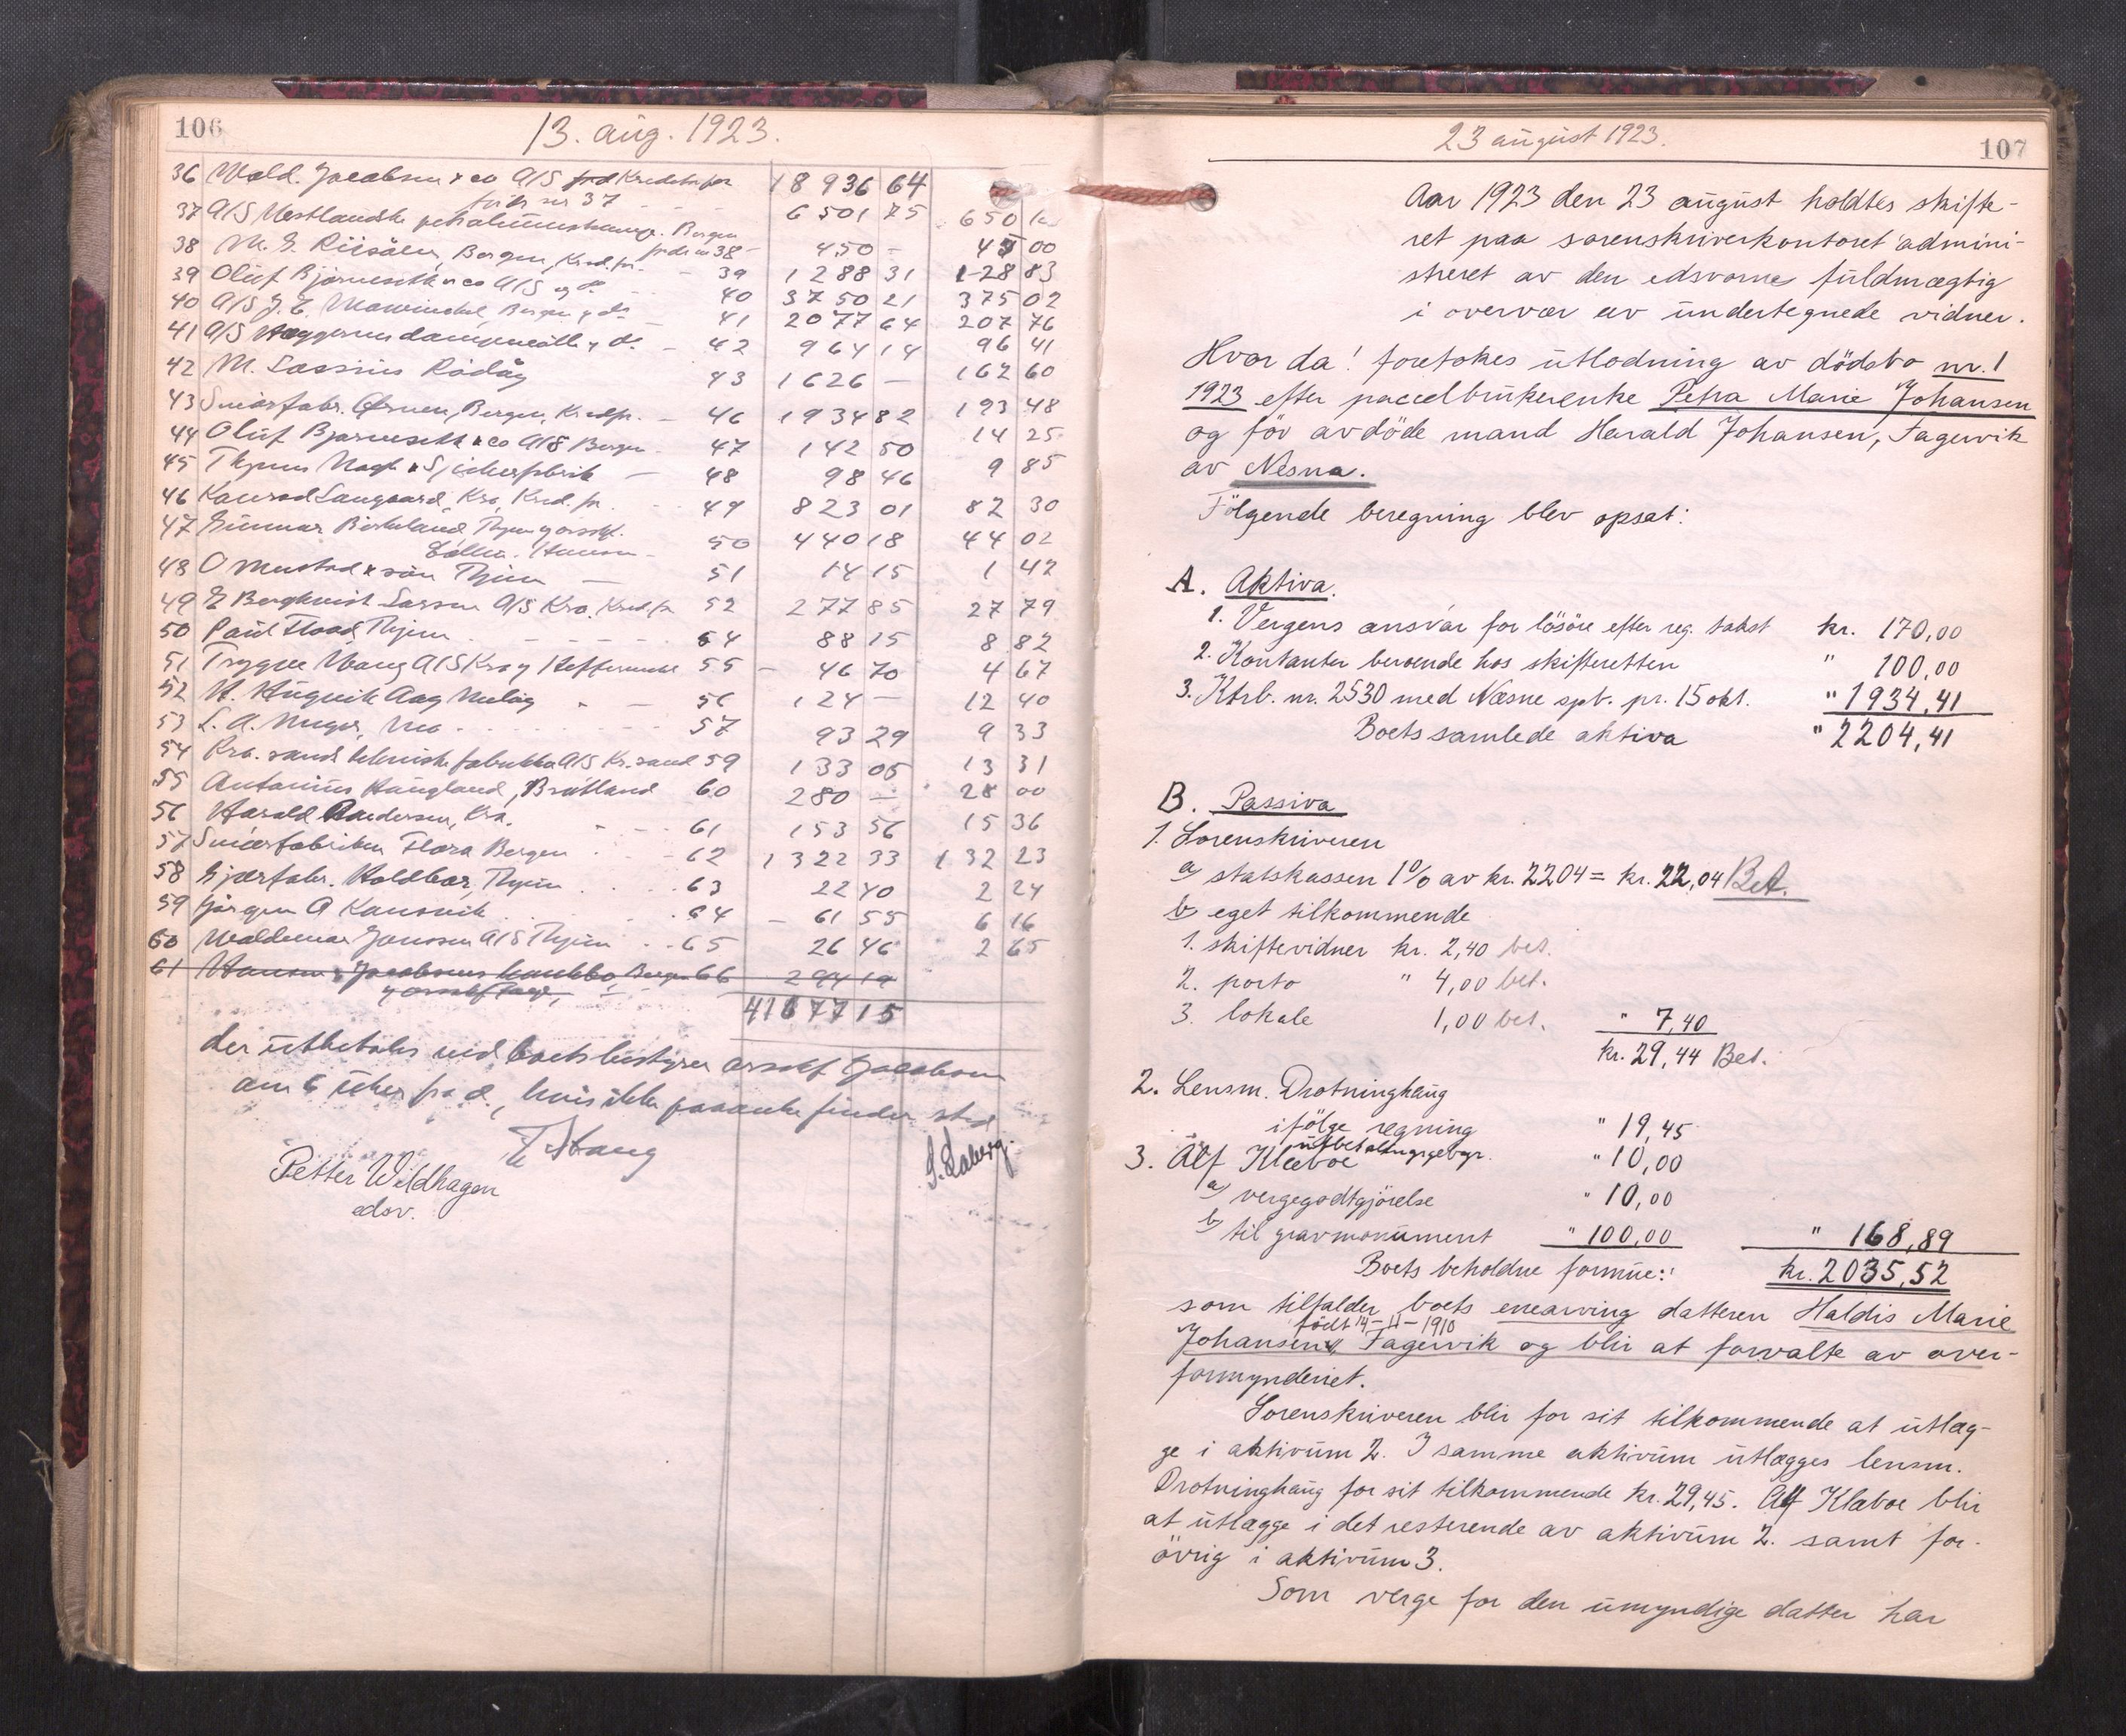 106
13. aug. 1923.
36 Wald. Jacobsen & co A/S Kreditorfor 18 936 64
37
37 A/S Vestlandske Bergen 6 501 75 650
38 M. G. Riisøen, Bergen, Kred.for. 38 450 – 45 00
39 Oluf Bjørneseth & co A/S og do 39 1 288 31 128 83
40 A/S J. E. Mowinckel, Bergen 40 3750 21 375 02
41 A/S Vaggerens dampmølle 41 2077 64 207 76
42 M. Lassius Rødøy 42 964 14 96 41
43 1626 – 162 60
43 Smørfabr. Ørnen, Bergen, Kredfor. 46 1934 82 193 48
44 Oluf Bjørneseth & co A/S Bergen 47 142 50 14 25
45 Thjems 48 98 46 9 85
46 Konrad Langaard, Kra, Kred.for. 49 823 01 82 30
47 Gunnar Birkeland, Thjem 50 440 18 44 02
48 O Mustad & søn Thjem 51 14 15 1 42
49 E Bergkvist Larssen A/S Kra. Kred.for 52 277 85 27 79
50 Paul Fload Thjem 54 88 15 8 82
51 Trygve Wang A/S Kra 55 46 70 4 67
52 56 124 – 12 40
53 L. A. Meyer, Mo 57 93 29 9 33
54 Kra. sands kemiske fabrikker A/S Kr.sand 59 133 05 13 31
55 Antonius Haugland, Bratland 60 280 – 28 00
56 Harald Andersen, Kra. 61 153 56 15 36
57 Smørfabriken Flora Bergen 62 1 322 33 132 23
58 Gjærfabr. Holdbar, Thjem 63 22 40 2 24
59 Jørgen A Kanonik 64 61 55 6 16
60 Waldemar Janssen A/S Thjem 65 26 46 2 65
61 Hansen & Jacobsens Bergen 66 294 19
41677 15
der utbetales ved boets bestyrer orsakf Jacobsen
om 6 uker fra d., hvis ikke paaanke finder sted
Petter Wildhagen
edsv.
107
23 august 1923.
Aar 1923 den 23 august holdtes skifte-
ret paa sorenskriverkontoret admini-
streret av den edsvorne fuldmægtig
i overvær av undertegnede vidner.
Hvor da! foretokes utlodning av dödsbo nr. 1
1923 efter parcelbrukerenke Petra Marie Johansen
og för avdöde mand Harald Johansen, Fagervik
av Nesna.
Fölgende beregning blev opsat:
A. Aktiva.
1. Vergens ansvar for lösöre efter reg. takst kr. 170,00
2. Kontanter beroende hos skifteretten " 100,00
3. Ktrb. nr. 2530 med Næsne spb. pr. 15 okt. " 1934,41
Boets samlede aktiva " 2204,41
B. Passiva
1. Sorenskriveren
a) statskassen 1% av kr. 2204 = kr. 22,04 Bet.
b) eget tilkommende
1. skiftevidner kr. 2,40 bet.
2. porto " 4,00 bet.
3. lokale 1,00 bet. " 7,40
kr. 29,44 Bet.
2. Lensm. Drotninghaug
ifölge regning " 19,45
utbetalingsgebyr. " 10,00
3. Alf Klæboe
a) vergegodtgjörelse " 10,00
b) til gravmonument " 100,00 " 168,89
Boets beholdne formue: kr. 2035,52
som tilfalder boets enearving datteren Haldis Marie
födt 14-11-1910
Johansen, Fagervik og blir at forvalte av over-
formynderiet.
Sorenskriveren blir for sit tilkommende at utlæg-
ge i aktivum 2. I samme aktivum utlægges lensm.
Drotninghaug for sit tilkommende kr. 29,45. Alf Klæboe blir
at utlægge i det resterende av aktivum 2. samt for-
övrig i aktivum 3.
Som verge for den umyndige datter har